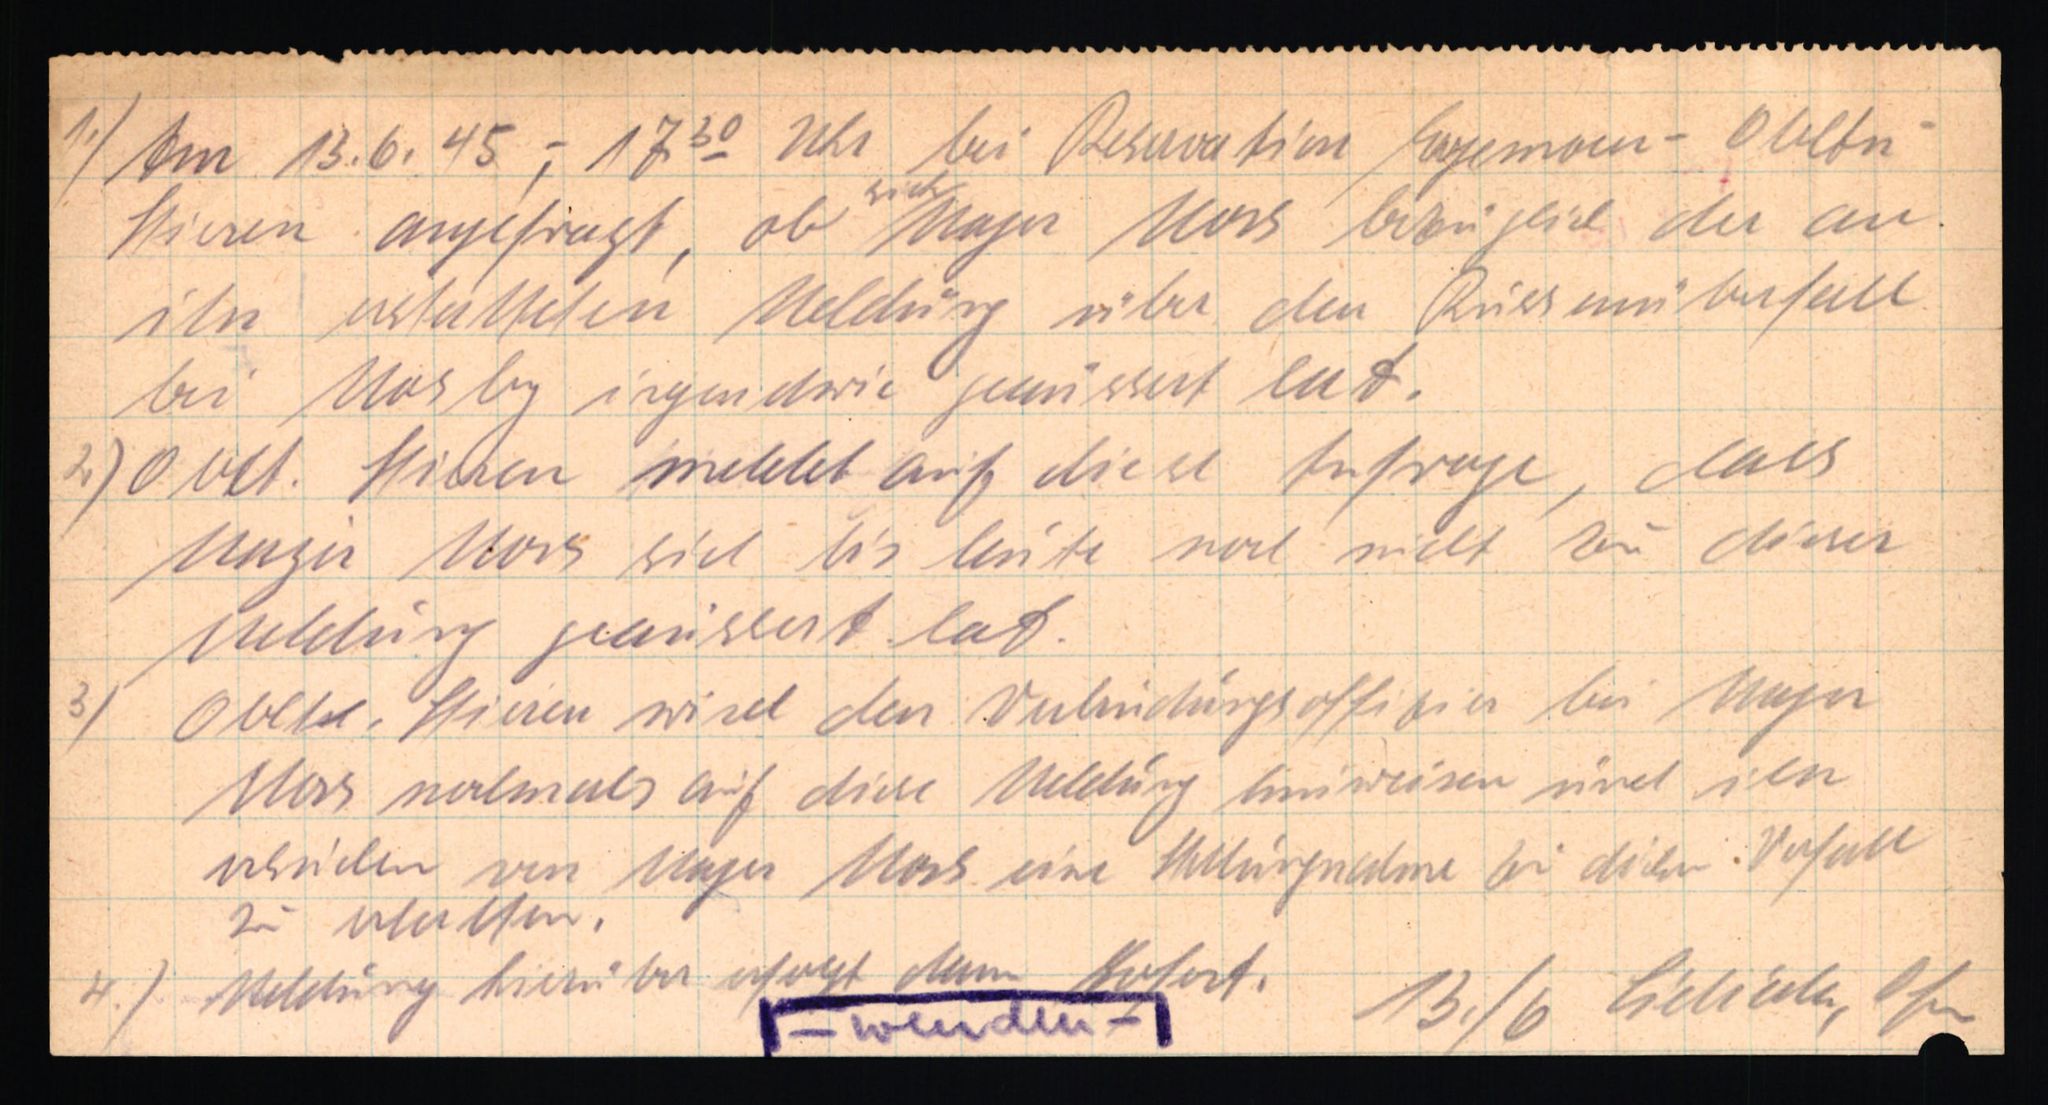 1.) Am 13.6.45, 17³⁰ Uhr bei Reservation Obltn
Stieren angefragt, ob sich Major Mors bezüglich der an
ihn erstatteten Meldung über den Russenüberfall
bei Mosby irgendwie geäussert hat.
2.) Oblt. Stieren meldet auf diese Anfrage, dass
Major Mors sich bis heute noch nicht zu dieser
Meldung geäussert hat.
3) Obltn. Stieren wird den Verbindungsoffizier bei Major
Mors nochmals auf diese Meldung hinweisen und ihn
ersuchen von Major Mors eine Stellungnahme zu diesem Vorfall
zu erhalten.
4.) Meldung hierüber erfolgt dann sofort.
13./6
- wenden -